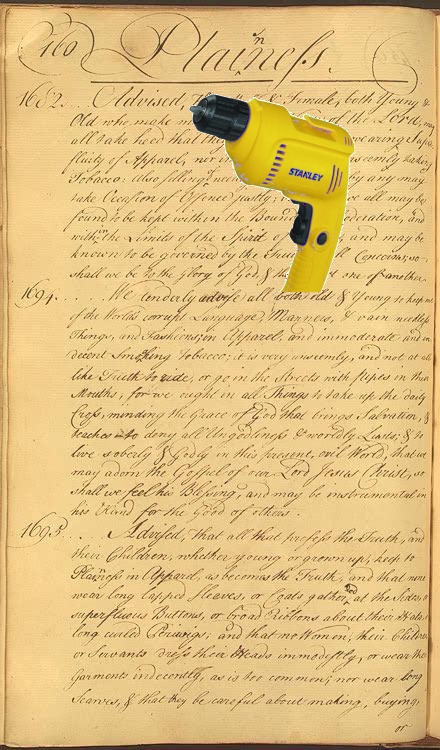 160 Plainness.
1682... Advised, Male & Female, both Young &
Old who make of the Lord, may
all take heed that wearing Supe
fluity of Apparel, nor in seemly taking
Tobacco; also selling need by any may
take Occasion of Offence justly; we all may be
found to be kept within the Bounds Moderation, and
within the Limits of the Spirit of and may be
known to be governed by the Truth all Concerns, so
shall we be to the Glory of God, & the of one another
1694.... We tenderly advise all both old & Young to keep
of the Worlds corrupt Language, Manners, & vain needless
Things, and Fashions, in Apparel; and immoderate and in
decent Smoking Tobacco; it is very unseemly, and not at all
like Truth to ride, or go in the Streets with pipes in their
Mouths; for we ought in all Things to take up the daily
Cross, minding the Grace of God that brings Salvation, &
teaches to deny all Ungodliness & worldly Lusts; & to
live soberly & Godly in this present, evil World, that we
may adorn the Gospel of our Lord Jesus Christ, so
shall we feel his Blessing, and may be instrumental in
his Hand for the Good of others.
1695... Advised, that all that profess the Truth, and
their Children, whether young or grown up, keep to
Plainness in Apparel, as becomes the Truth, and that none
wear long lapped Sleaves, or Coats gather'd at the Sides, or
superfluous Buttons, or broad Ribbons about their Hats, or
long curled Periwigs, and that no Women, their Children
or Servants dress their Heads immodestly, or wear their
Garments indecently, as is too common; nor wear long
Scarves, & that they be careful about making, buying
or
STANLEY